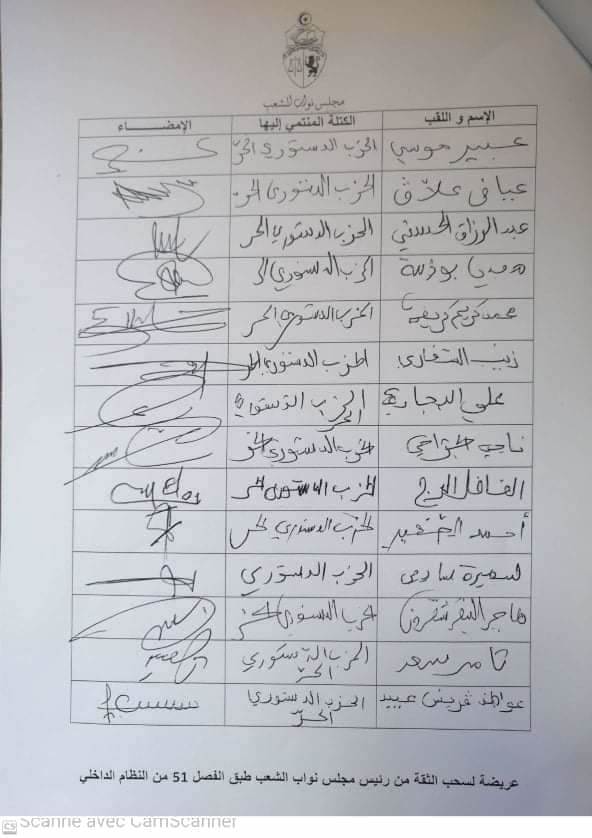 مجلس نواب الشعب
الإسم و اللقب الكتلة المنتمي إليها الإمضـــــاء
عبير موسي الحزب الدستوري الحرّ
علاڨ الحزب الدستوري الحر
عبد الرزاق الحسني الحزب الدستوري الحر
مريم الحزب الدستوري
محمد كريم كريفة الحزب الدستوري الحر
زينب السفاري الحزب الدستوري الحر
علي البجاوي الحزب الدستوري
الحر
ناجي الجراحي الحزب الدستوري الحر
الفاضل الحزب الدستوري الحر
أحمد الصغير الحزب الدستوري الحر
سميرة سايحي الحزب الدستوري
هاجر النيفر شقرون الحزب الدستوري الحر
ثامر سعد الحزب الدستوري
الحرّ
عواطف قريش عبيد الحزب الدستوري
الحرّ
عريضة لسحب الثقة من رئيس مجلس نواب الشعب طبق الفصل 51 من النظام الداخلي
CS Scanné avec CamScanner